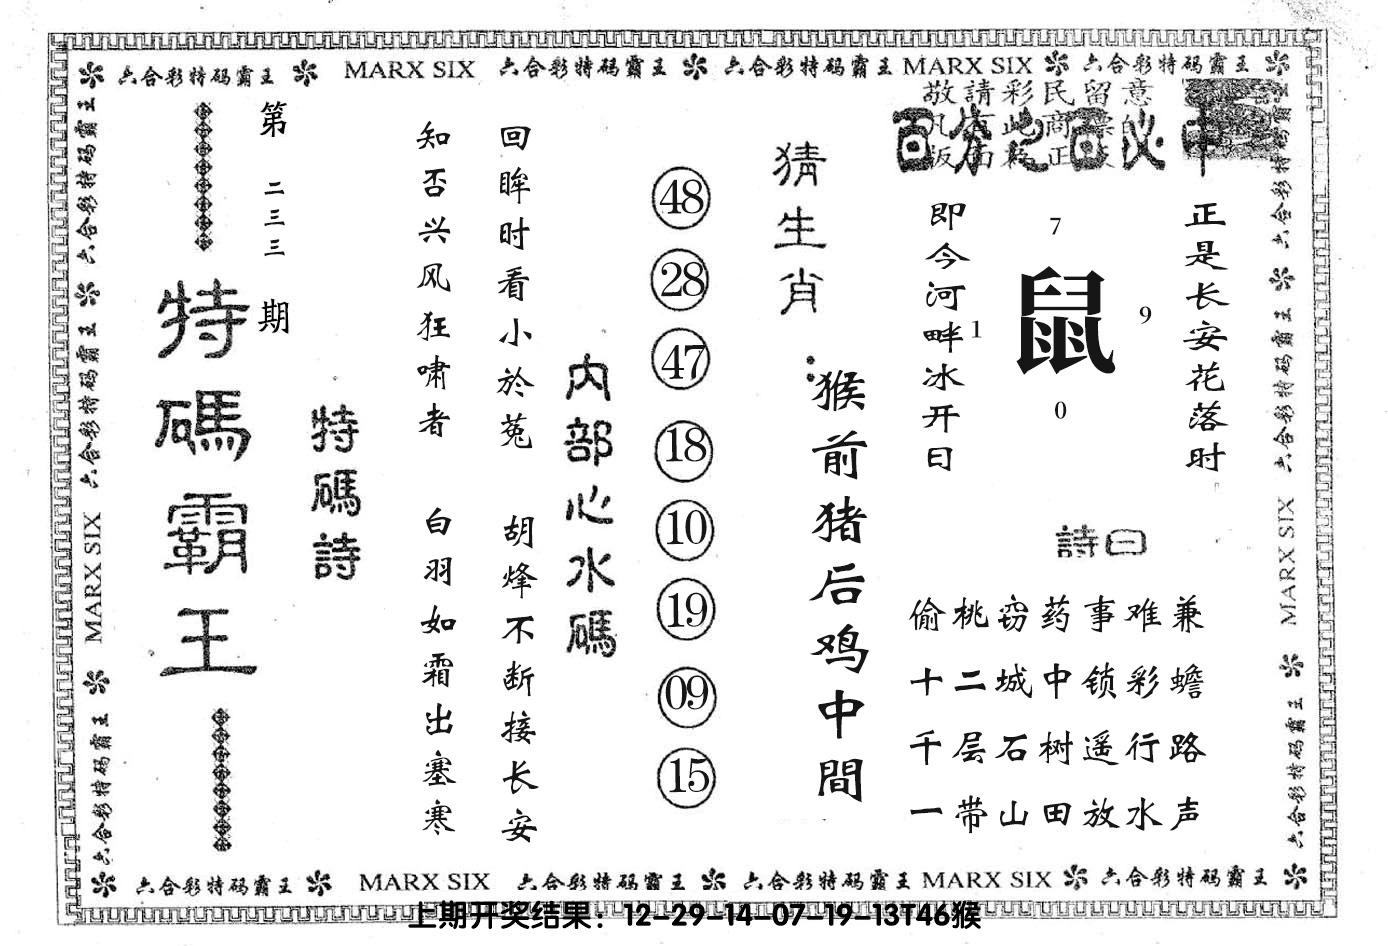 六合彩特码霸王 MARX SIX 六合彩特码霸王 六合彩特码霸王 MARX SIX 六合彩特码霸王
敬請彩民留意
正是长安花落时
7
鼠
9
1
0
即今河畔冰开日
詩曰
偷桃窃药事难兼
十二城中锁彩蟾
千层石树遥行路
一带山田放水声
猜生肖：
猴前猪后鸡中間
48
28
47
18
10
19
09
15
内部心水碼
回眸时看小於菟 胡烽不断接长安
知否兴风狂啸者 白羽如霜出塞寒
特碼詩
第二三三期
特碼霸王
六合彩特码霸王 六合彩特码霸王 MARX SIX 六合彩特码霸王
六合彩特码霸王 六合彩特码霸王 MARX SIX 六合彩特码霸王
六合彩特码霸王 MARX SIX 六合彩特码霸王 六合彩特码霸王 MARX SIX 六合彩特码霸王
上期开奖结果：12-29-14-07-19-13T46猴